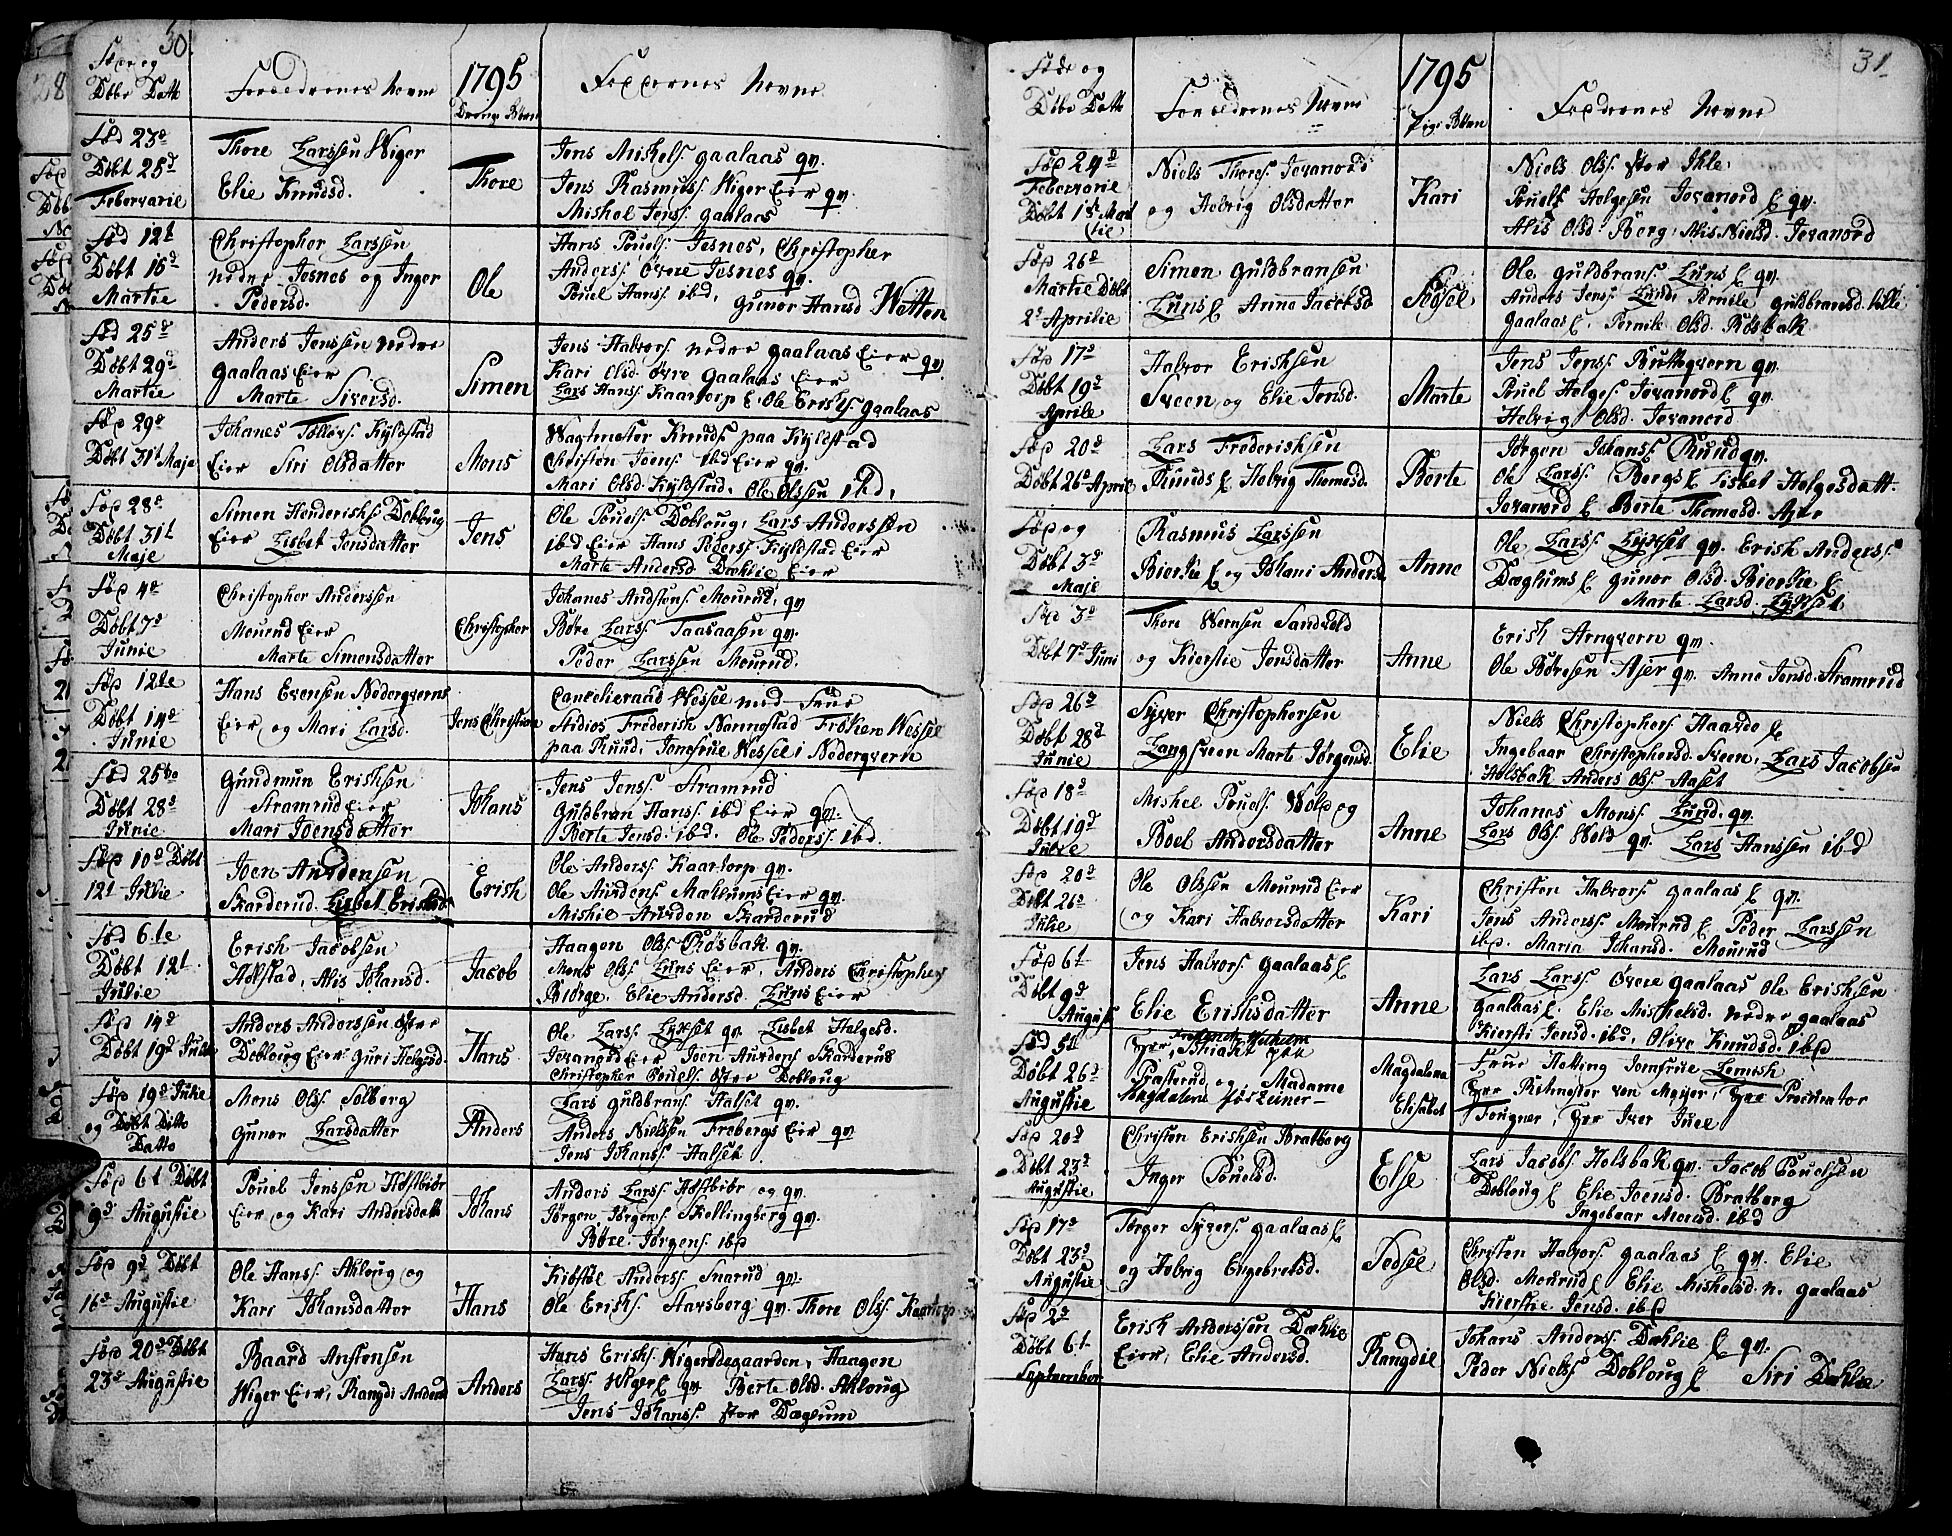 30
Føde og
Døbe Datt
Forældrenes Nevne
1795
Drenge Børn
Faddernes Nevne
Fød 23d
Døbt 25d
Februarie
Thore Larssen Wiger
Elie Knudsd.
Thore
Jens Mikels. gaalaas qv.
Jens Rasmuss. Wiger Eier qv.
Mikel Jenss. gaalaas
Fød 12t
Døbt 15d
Martie
Christopher Larssen
nedre Jesnes og Inger
Pedersd.
Ole
Hans Pouels. Jesnes, Christopher
Anderss. Øvre Jesnes qv.
Pouel Hanss. ibd, Gunor Hansd Wetten
Fød 25d
Døbt 29d
Martie
Anders Jenssen nedre
gaalaas Eier
Marte Siversd.
Simen
Jens Halvors. nedre gaalaas Eier qv
Kari Olsd. Øvre gaalaas Eier
Lars Hanss. Kaartorp E. Ole Erikss. gaalaas
Fød 29d
Døbt 31t Maje
Johanes Tollevs. Kyldstad
Eier Siri Olsdatter
Mons
Wagtmester Knuds. paa Kyldstad
Christen Joens. ibd Eier qv.
Mari Olsd. Kyldstad, Ole Olssen ibd,
Fød 28d
Døbt 31t
Maje
Simen Henderichs. Dobloug
Eier Lisbet Jensdatter
Jens
Ole Pouels. Dobloug, Lars Anderssen
ibd Eier Hans Peders. Kyldstad Eier
Marte Andersd Dæhlie Eier
Fød 4d
Døbt 7d
Junie
Christopher Anderssen
Mourud Eier
Marte Simensdatter
Christopher
Johanes Andstens. Mourud, qv
Børe Larss. Taasaasen qv.
Peder Larssen Mourud.
Fød 12te
Døbt 14d
Junie
Hans Evensen Nøderqvern
Eier og Mari Larsd.
Jens Christian
Cancelieraad Wessel med Frue
Studios Frederik Nannestad Frøken Wessel
paa Ruud, Jomfrue Wessel i Nøderqvern
Fød 25de
Døbt 28d
Junie
Gundmun Eriksen
Stramrud Eier
Mari Joensdatter
Johans
Jens Jenss. Stramrud
Guldbran Hanss. ibd Eier qv.
Berte Jensd. ibd. Ole Pederss. ibd
Fød 10d Døbt
12t Julie
Joen Amdensen
Skarderud. Lisbet Eriksd
Erik
Ole Anderss. Kaartorp qv.
Ole Amdens. Mæhlums Eier qv.
Mikel Amden Skarderud
Fød 6te
Døbt 12t
Julie
Erik Jacobsen
Holstad, Alis Johansd.
Jacob
Haagen Olss. Røsbak qv.
Mons Olss. Luns Eier, Anders Christophers
Biørge. Elie Andersd. Luns Eier
Fød 14d
Døbt 19d Julie
Anders Anderssen Øvre
Dobloug Eier Guri Helgesd.
Hans
Ole Larss. Lyxset qv. Lisbet Helgesd.
Jevanord Eier Joen Amdens. Skarderud
Christopher Pouels. Øvre Dobloug
Fød 19d Julie
og Døbt Ditto
Datto
Mons Olss. Solberg
Gunor Larsdatter
Anders
Lars Guldbrans. Halset qv.
Anders Nielssen Frebergs Eier qv
Jens Johanss. Halset.
Fød 6t Døbt
9d Augustie
Pouel Jenssen Hostbiør
Eier og Kari Andersdatt
Johans
Anders Larss. Hostbiør og qv.
Jørgen Jørgens. Skellingberg qv.
Børe Jørgens. ibd
Fød 9d Døbt
16d Augustie
Ole Hanss. Akloug og
Kari Johansdatter
Hans
Kiøstøl Anders. Snarud qv.
Ole Erikss. Stavsberg qv. Thore Olss. Kaartorp
Fød 20d Døbt
23d Augustie
Baard Anstensen
Wiger Eier, Rangdi Andersd
Anders
Hans Erikss. Wiger Ødegaarden, Haagen
Larss. Wiger E qv. Berte Olsd. Akloug
Jens Johanss. stor Dæglum
31
Føde og
Døbe Datt
Forældrenes Nevne
1795
Pige Børn
Faddernes Nevne
Fød 24d
Februarie
Døbt 1ste Mart
tie
Niels Thoress. Jevanord
og Helvig Olsdatter
Kari
Niels Olss. stor Ihle
Pouels Helgesen Jevanord E qv.
Alis Olsd. Berg, Alis Nielsd. Jevanord
Fød 26d
Martie Døbt
2d Aprilie
Simen Guldbransen
Luns E Anna Jacobsd
Sidsel
Ole Guldbrans. Luns E qv.
Anders Jenss. Lund, Pernile Guldbransd. lille
gaalaas E, Pernile Olsd. Røsbak
Fød 17d
Døbt 19d
Aprile
Halvor Eriksen
Sveen og Elie Jensd.
Marte
Jens Jenss. Butteqvern qv.
Pouel Helges. Jevanord E qv.
Helvig Olsd. Jevanord
Fød 20d
Døbt 26d April
Lars Frederiksen
Ruuds E Helvig Thomesd.
Berte
Jørgen Johans. Ruud qv.
Ole Larss. Bergs E Lisbet Helgesdatt.
Jevanord E Berte Thomesd. Ajer
Fød og
Døbt 3d
Maje
Rasmus Larssen
Bierke E og Johani Andersd
Anne
Ole Larss. Lyxset qv. Erik Anders.
Dæglums E Gunor Olsd. Bierke E
Marte Larsd. Lyxset
Fød 3d
Døbt 7d Juni
Thore Wernsen Sandvold
og Kierstie Jensdatter
Anne
Erik Arnqvern qv.
Ole Børesen Ajer qv. Anne Jensd. Stramrud
Fød 26d
Døbt 28d
Junie
Syver Christophersen
Langsveen Marte Jørgensd
Elie
Niels Christophers. Haande E
Ingebaar Christophersd. Sveen, Lars Jacobsen
Holsbak Anders Olss. Aaset
Fød 18d
Døbt 19d
Julie
Mikel Pouels. Wold og
Boel Andersdatter
Anne
Johanes Mons. Lund. qv.
Lars Olss. Wold qv. Lars Hanssen ibd
Fød 20d
Døbt 26d
Julie
Ole Olssen Mourud Eier
og Kari Halvorsdatter
Kari
Christen Halvors. gaalaas E qv.
Jens Anderss. Mourud E Peder Larssen
ibd. Maria Johansd. Mourud
Fød 6t
Døbt 9d
August
Jens Halvors. gaalaas E
Elie Eriksdatter
Anne
Lars Larss. Øvre gaalaas Ole Eriksen
gaalaas E. Elie Mikelsd. nedre gaalaas
Kiersti Jensd. ibd, Olive Knudsd. ibd
Fød 5t
Døbt 26d
Augustie
Hr.
Prasterud og Madame
Magdalene
Magdalena
Elisabet
Frue Hetting Jomfrue Lemich
Hr. Ritmester von Meyer, Hr. Procurator
Fougner, Hr. Iver Juel
Fød 20d
Døbt 23d
Augustie
Christen Eriksen Bratberg
Inger Pouelsd.
Else
Lars Jacobs. Holsbak qv. Jacob Pouelsen
Dobloug E Elie Joensd. Bratberg
Ingebaar Monsd. ibd
Fød 17d
Døbt 23d
Augustie
Torger Syvers. gaalaas E
og Helvig Engebretsd.
Sedsel
Christen Halvors. gaalaas E qv. Elie
Olsd. Mourud E Elie Mikelsd. n. gaalaas
Kierstie Jensd. ibd
Fød 2d
Døbt 6t
September
Erik Anderssen Dæhlie
Eier, Elie Andersd.
Rangdie
Johans Anderss. Dæhlie E qv.
Peder Nielss. Dobloug E Siri Dæhlie